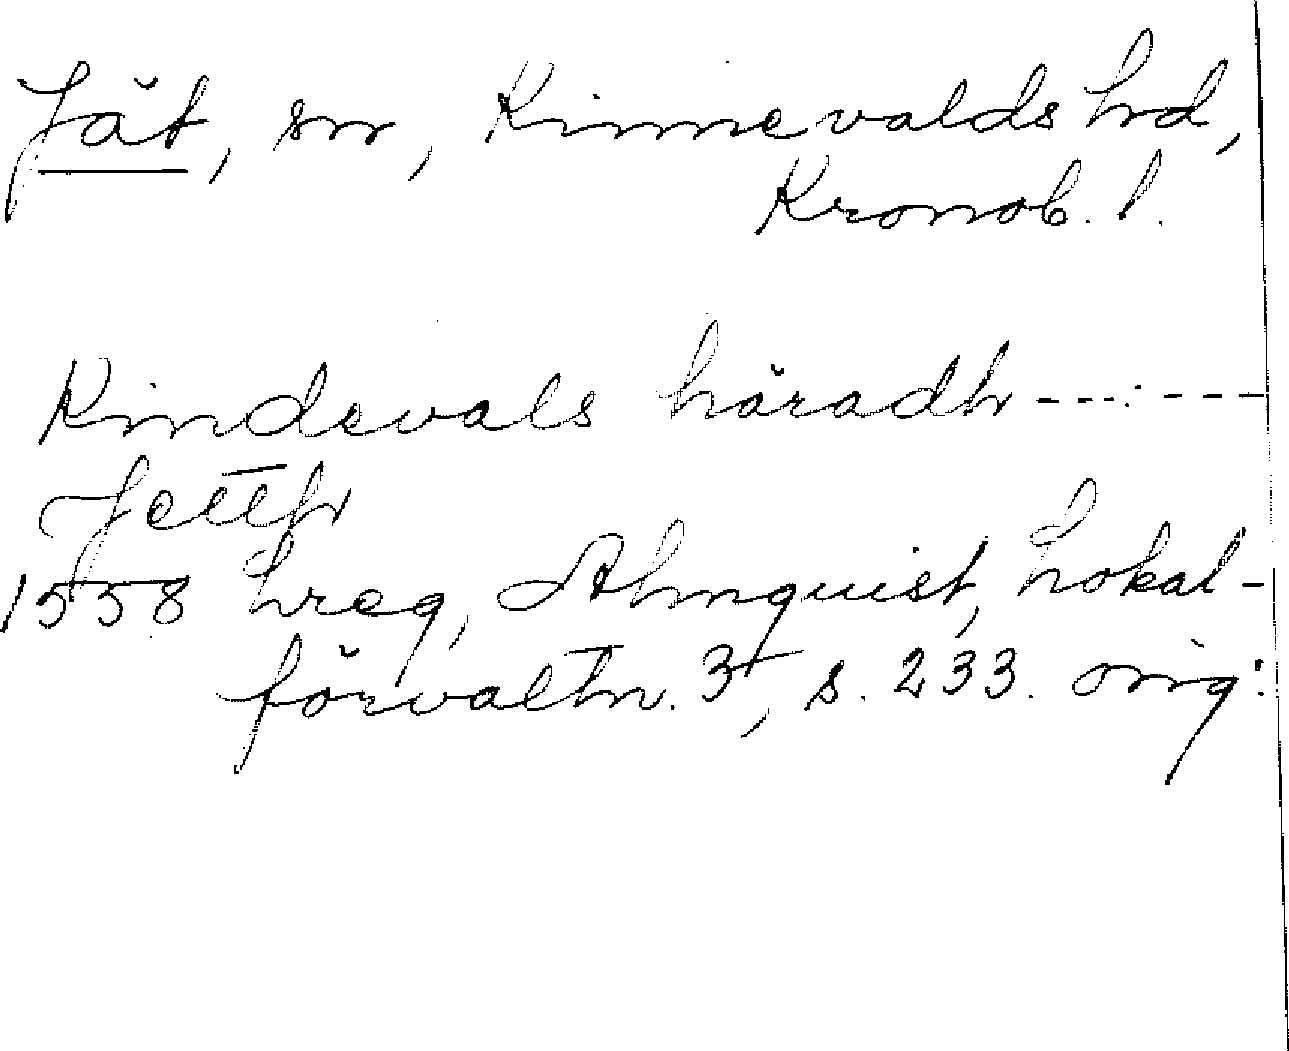 Jät, sn, Kinnevalds hd,
Kronob. l.
Kindevals häradh ------
Jetth
1558 hreg, Almquist, Lokal-
förvaltn. 3, s. 233. orig: